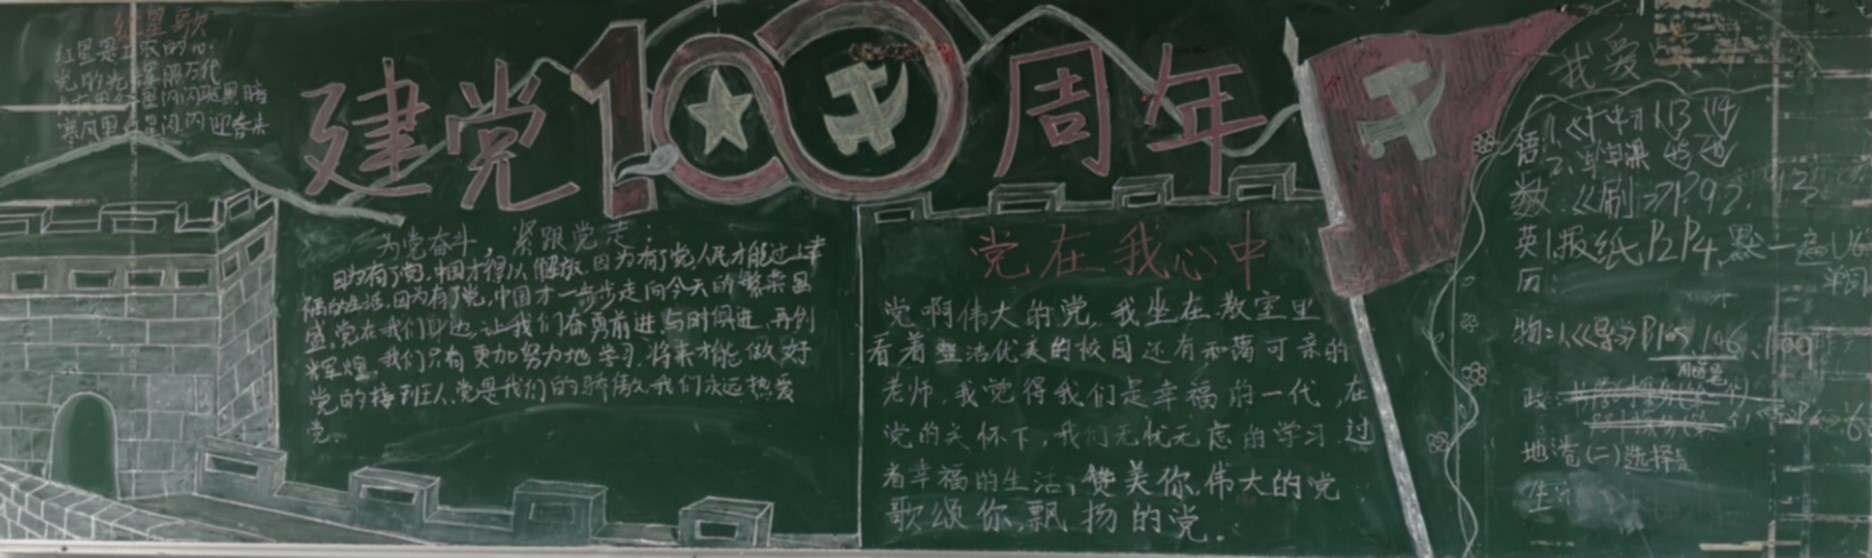 红星歌
红星是工农的心
党的光辉照万代
红星闪闪驱黑暗
寒风里红星闪闪迎春来
建党100周年
为党奋斗，紧跟党走：
因为有了党，中国才得以解放，因为有了党，人民才能过上幸
福的生活，因为有了党，中国才一步步走向今天的繁荣昌
盛，党在我们身边，让我们奋勇前进，与时俱进，再创
辉煌，我们只有更加努力地学习，将来才能做好
党的接班人，党是我们的骄傲，我们永远热爱
党。
党在我心中
党啊伟大的党，我坐在教室里
看着整洁优美的校园还有和蔼可亲的
老师，我觉得我们是幸福的一代，在
党的关怀下，我们无忧无虑的学习，过
着幸福的生活，赞美你，伟大的党
歌颂你，飘扬的党。
我爱学习
语：1.
113 114
2.
数：
P.92
英1.报纸P2P4，默一遍
历：
物：1.《导学》P105、106、109
政：
地：卷(二)选择
生：